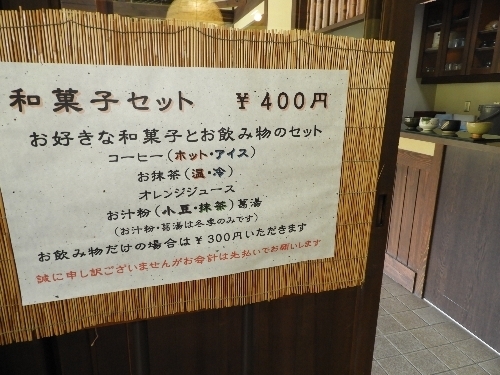 和菓子セット ￥400円
お好きな和菓子とお飲み物のセット
コーヒー(ホット・アイス)
お抹茶(温・冷)
オレンジジュース
お汁粉(小豆・抹茶)葛湯
(お汁粉・葛湯は冬季のみです)
お飲み物だけの場合は￥300円いただきます
誠に申し訳ございませんがお会計は先払いでお願いします